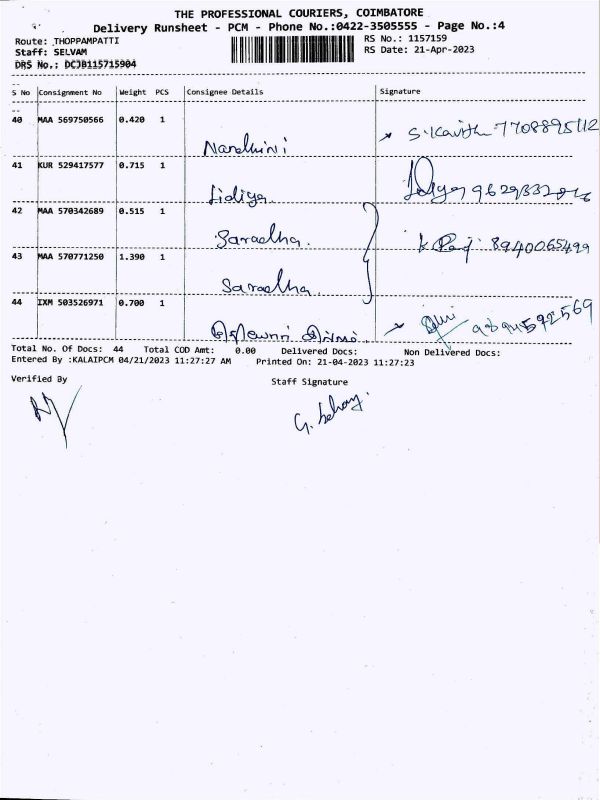 THE PROFESSIONAL COURIERS, COIMBATORE
Delivery Runsheet - PCM - Phone No.:0422-3505555 - Page No.:4
Route: THOPPAMPATTI
RS No.: 1157159
Staff: SELVAM
RS Date: 21-Apr-2023
DRS No.: DCJB115715904
S No Consignment No Weight PCS Consignee Details Signature
40 MAA 569750566 0.420 1 Nandhini S.Kavitha 7708895112
41 KUR 529417577 0.715 1 Lidiya Lidiya 9629332016
42 MAA 570342689 0.515 1 Saradha.
43 MAA 570771250 1.390 1 Saradha. 8940065499
44 IXM 503526971 0.700 1 9894592569
Total No. Of Docs: 44 Total COD Amt: 0.00 Delivered Docs: Non Delivered Docs:
Entered By :KALAIPCM 04/21/2023 11:27:27 AM Printed On: 21-04-2023 11:27:23
Verified By
Staff Signature